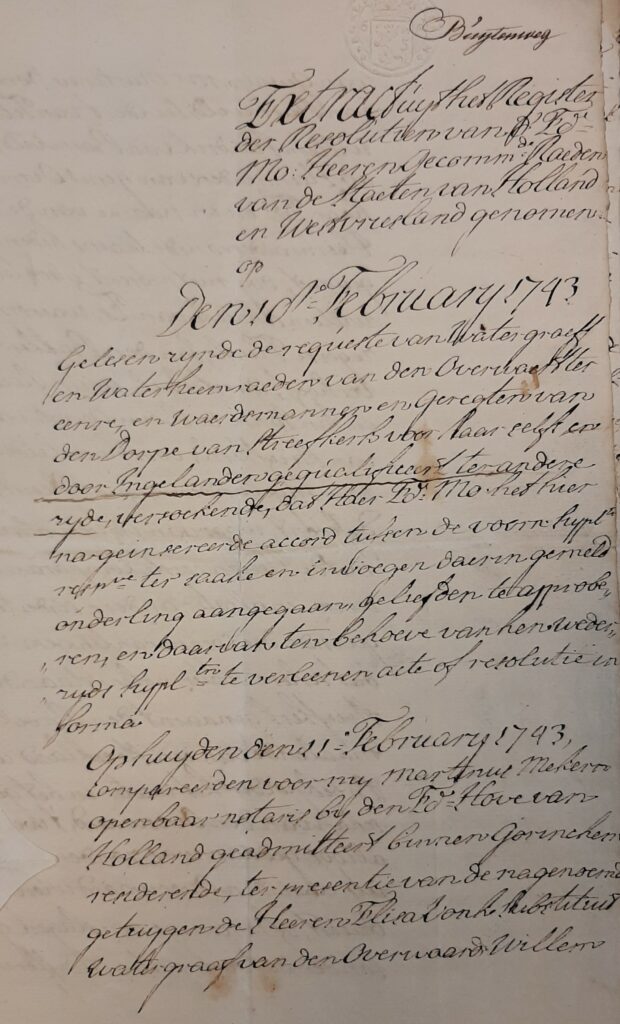 Buytenweg
Extract uyt het Register
der Resolutien van
Mo: Heeren Gecomm:de Raeden
van de Staeten van Holland
en Westvriesland genomen
op
Den February 1743
Gelesen zynde de requeste van Watergraeff
en Waterheemraeden van den Overwaert ter
eenre, en Waerdsmannen en Geregten van
den Dorpe van Streefkerk voor haar selff en
door Ingelanden gequalificeert ter andere
zyde, versoekende, dat Haer Ed: Mo: het hier
na geinsereerde accord tussen de voorn suppl:ten
resp:ve ter saake en invoegen daerin gemeld
onderling aangegaan, geliefden te approbe„
„ren, en daarvan ten behoeve van hen weder„
„zyds suppl:ten te verleenen acte of resolutie in
forma.
Op huyden den 11:e February 1743,
compareerden voor my Martinus
openbaar notaris by den Ed:n Hove van
Holland geadmitteert binnen Gorinchem
resideerende, ter presentie van de nagenoemde
getuygen de Heeren Elisa Vonk Substituut
Watergraaf van den Overwaard, Willem